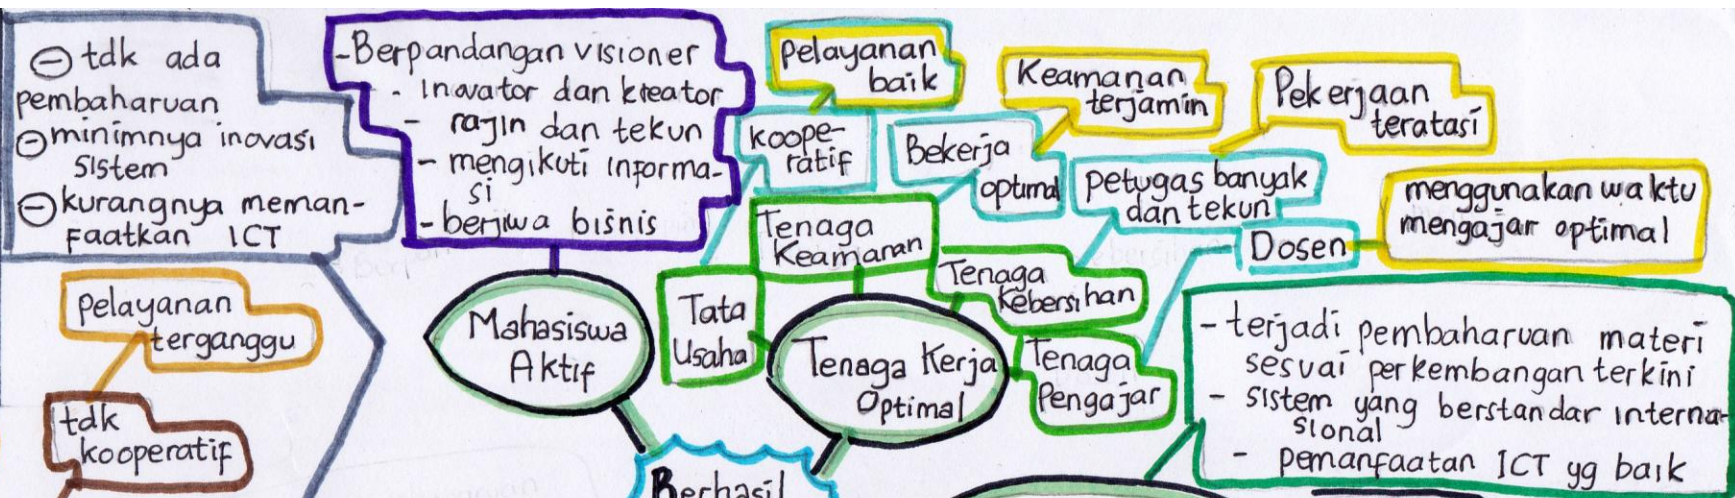 ⊖ tdk ada
pembaharuan
⊖ minimnya inovasi
sistem
⊖ kurangnya meman-
faatkan ICT
pelayanan
terganggu
tdk
kooperatif
- Berpandangan visioner
- inovator dan kreator
- rajin dan tekun
- mengikuti informa-
si
- berjiwa bisnis
Mahasiswa
Aktif
pelayanan
baik
koope-
ratif
Tata
Usaha
Keamanan
terjamin
Bekerja
optimal
Tenaga
Keamanan
Pekerjaan
teratasi
petugas banyak
dan tekun
Tenaga
Kebersihan
menggunakan waktu
mengajar optimal
Dosen
Tenaga
Pengajar
Tenaga Kerja
Optimal
- terjadi pembaharuan materi
sesuai perkembangan terkini
- sistem yang berstandar interna-
sional
- pemanfaatan ICT yg baik
Berhasil